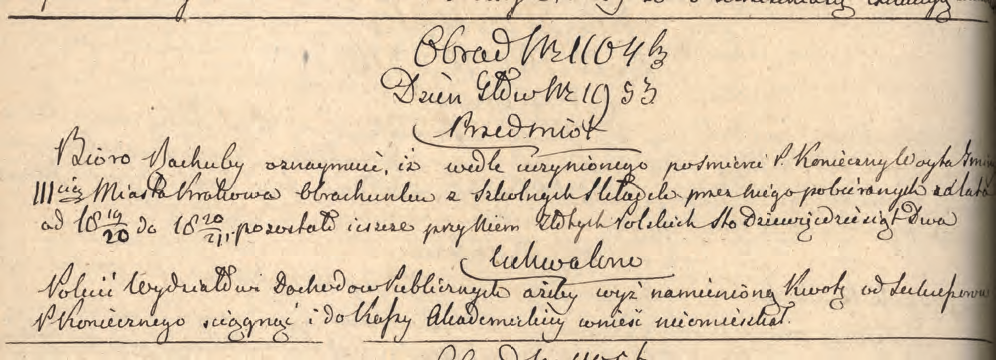 Obrad Nr 1104
Dzień Głów Nr 1953
Przedmiot
Bióro Rachuby oznaymuie, iż wedle uczynionego pośmierci P. Konieczny Woyta Gminy
III ciey Miasta Krakowa Obrachunku z Szkolnych Składek przez niego pobieranych za lata
od 18 19/20 do 18 20/21, pozostało ieszcze przy Niem Złotych Polskich sto Dziewięćdziesiąt Dwa
Uchwalono
Polecić Wydziałowi Dochodów Publicznych ażeby wyż namienioną Kwotę od
P. Koniecznego ściągnąć i do Kassy Akademickiey wnieść nieomieszkał.